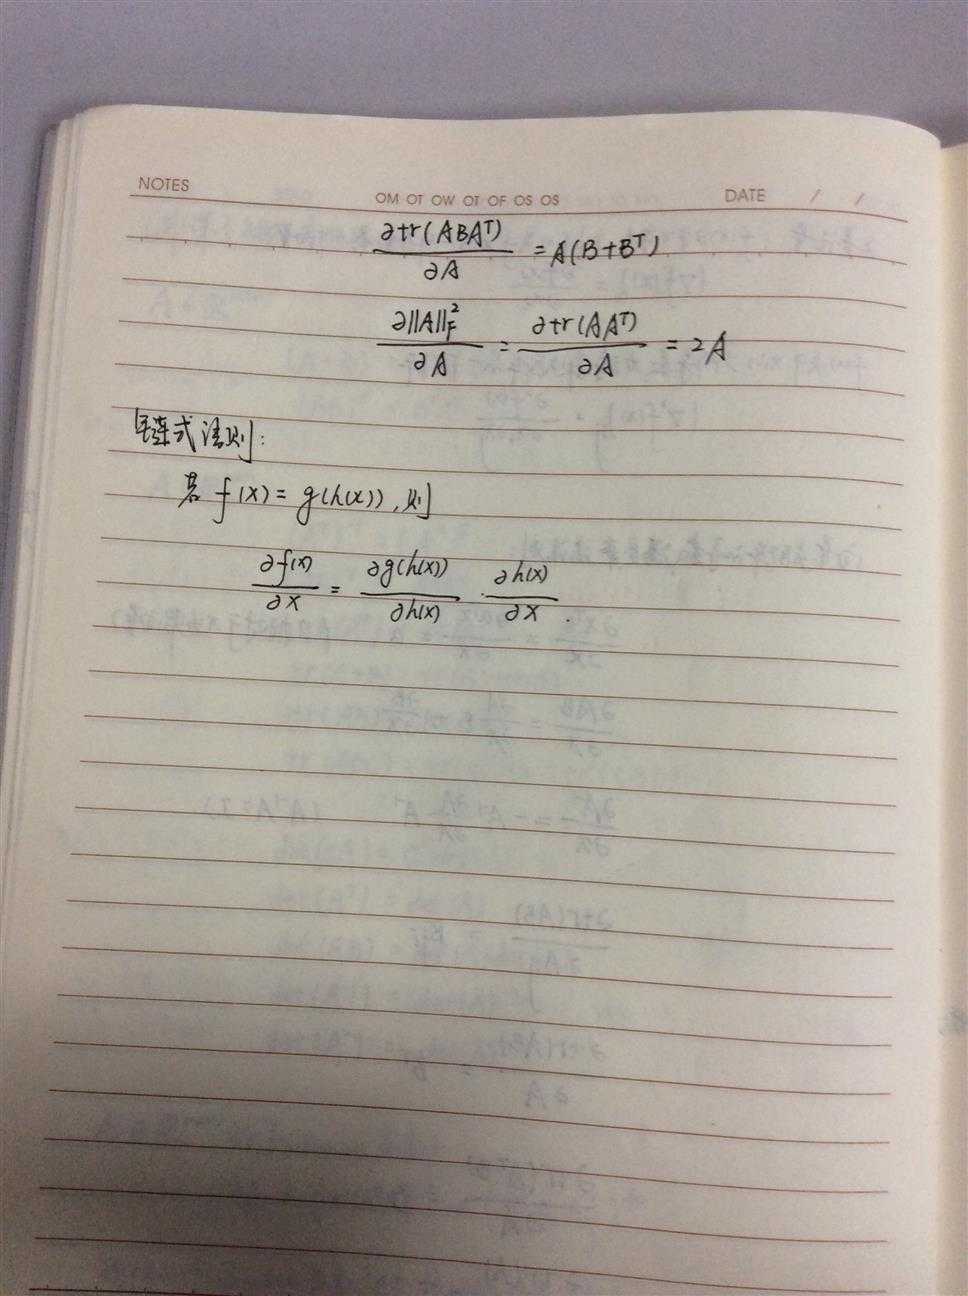 NOTES
OM OT OW OT OF OS OS
DATE / /
∂tr(ABAᵀ)/∂A = A(B+Bᵀ)
∂||A||²_F/∂A = ∂tr(AAᵀ)/∂A = 2A
链式法则:
若 f(x) = g(h(x)), 则
∂f(x)/∂x = ∂g(h(x))/∂h(x) · ∂h(x)/∂x .